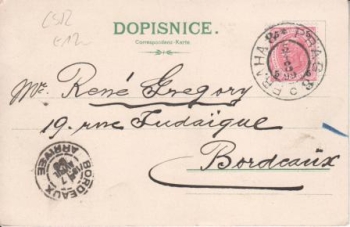 DOPISNICE.
Correspondenz-Karte.
PRAHA PRAG 8
Mr. René Gregory
19. rue Judaïque
Bordeaux
BORDEAUX
ARRIVÉE